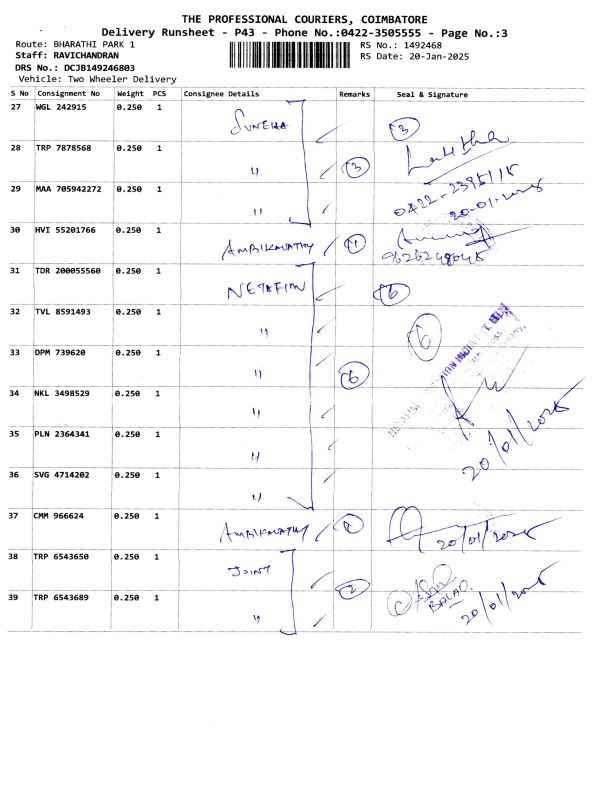 THE PROFESSIONAL COURIERS, COIMBATORE
Delivery Runsheet - P43 - Phone No.:0422-3505555 - Page No.:3
Route: BHARATHI PARK 1 RS No.: 1492468
Staff: RAVICHANDRAN RS Date: 20-Jan-2025
DRS No.: DCJB149246803
Vehicle: Two Wheeler Delivery
S No Consignment No Weight PCS Consignee Details Remarks Seal & Signature
27 WGL 242915 0.250 1
3
28 TRP 7878568 0.250 1
" 3
29 MAA 705942272 0.250 1
"
30 HVI 55201766 0.250 1
1
31 TDR 200055560 0.250 1
6
32 TVL 8591493 0.250 1
" 6
33 DPM 739620 0.250 1
" 6
34 NKL 3498529 0.250 1
"
35 PLN 2364341 0.250 1
" 20/01/2025
36 SVG 4714202 0.250 1
"
37 CMM 966624 0.250 1
20/01/2025
38 TRP 6543650 0.250 1
JOINT 2
39 TRP 6543689 0.250 1
" 20/01/2025